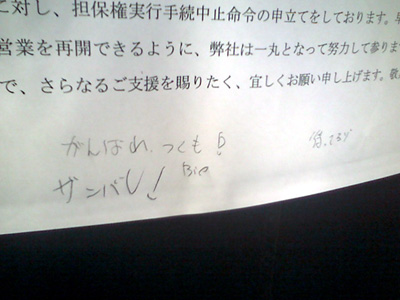 に対し、担保権実行手続中止命令の申立てをしております。早
営業を再開できるように、弊社は一丸となって努力して参ります
で、さらなるご支援を賜りたく、宜しくお願い申し上げます。敬
がんばれ、つくも!
ザンバレ!